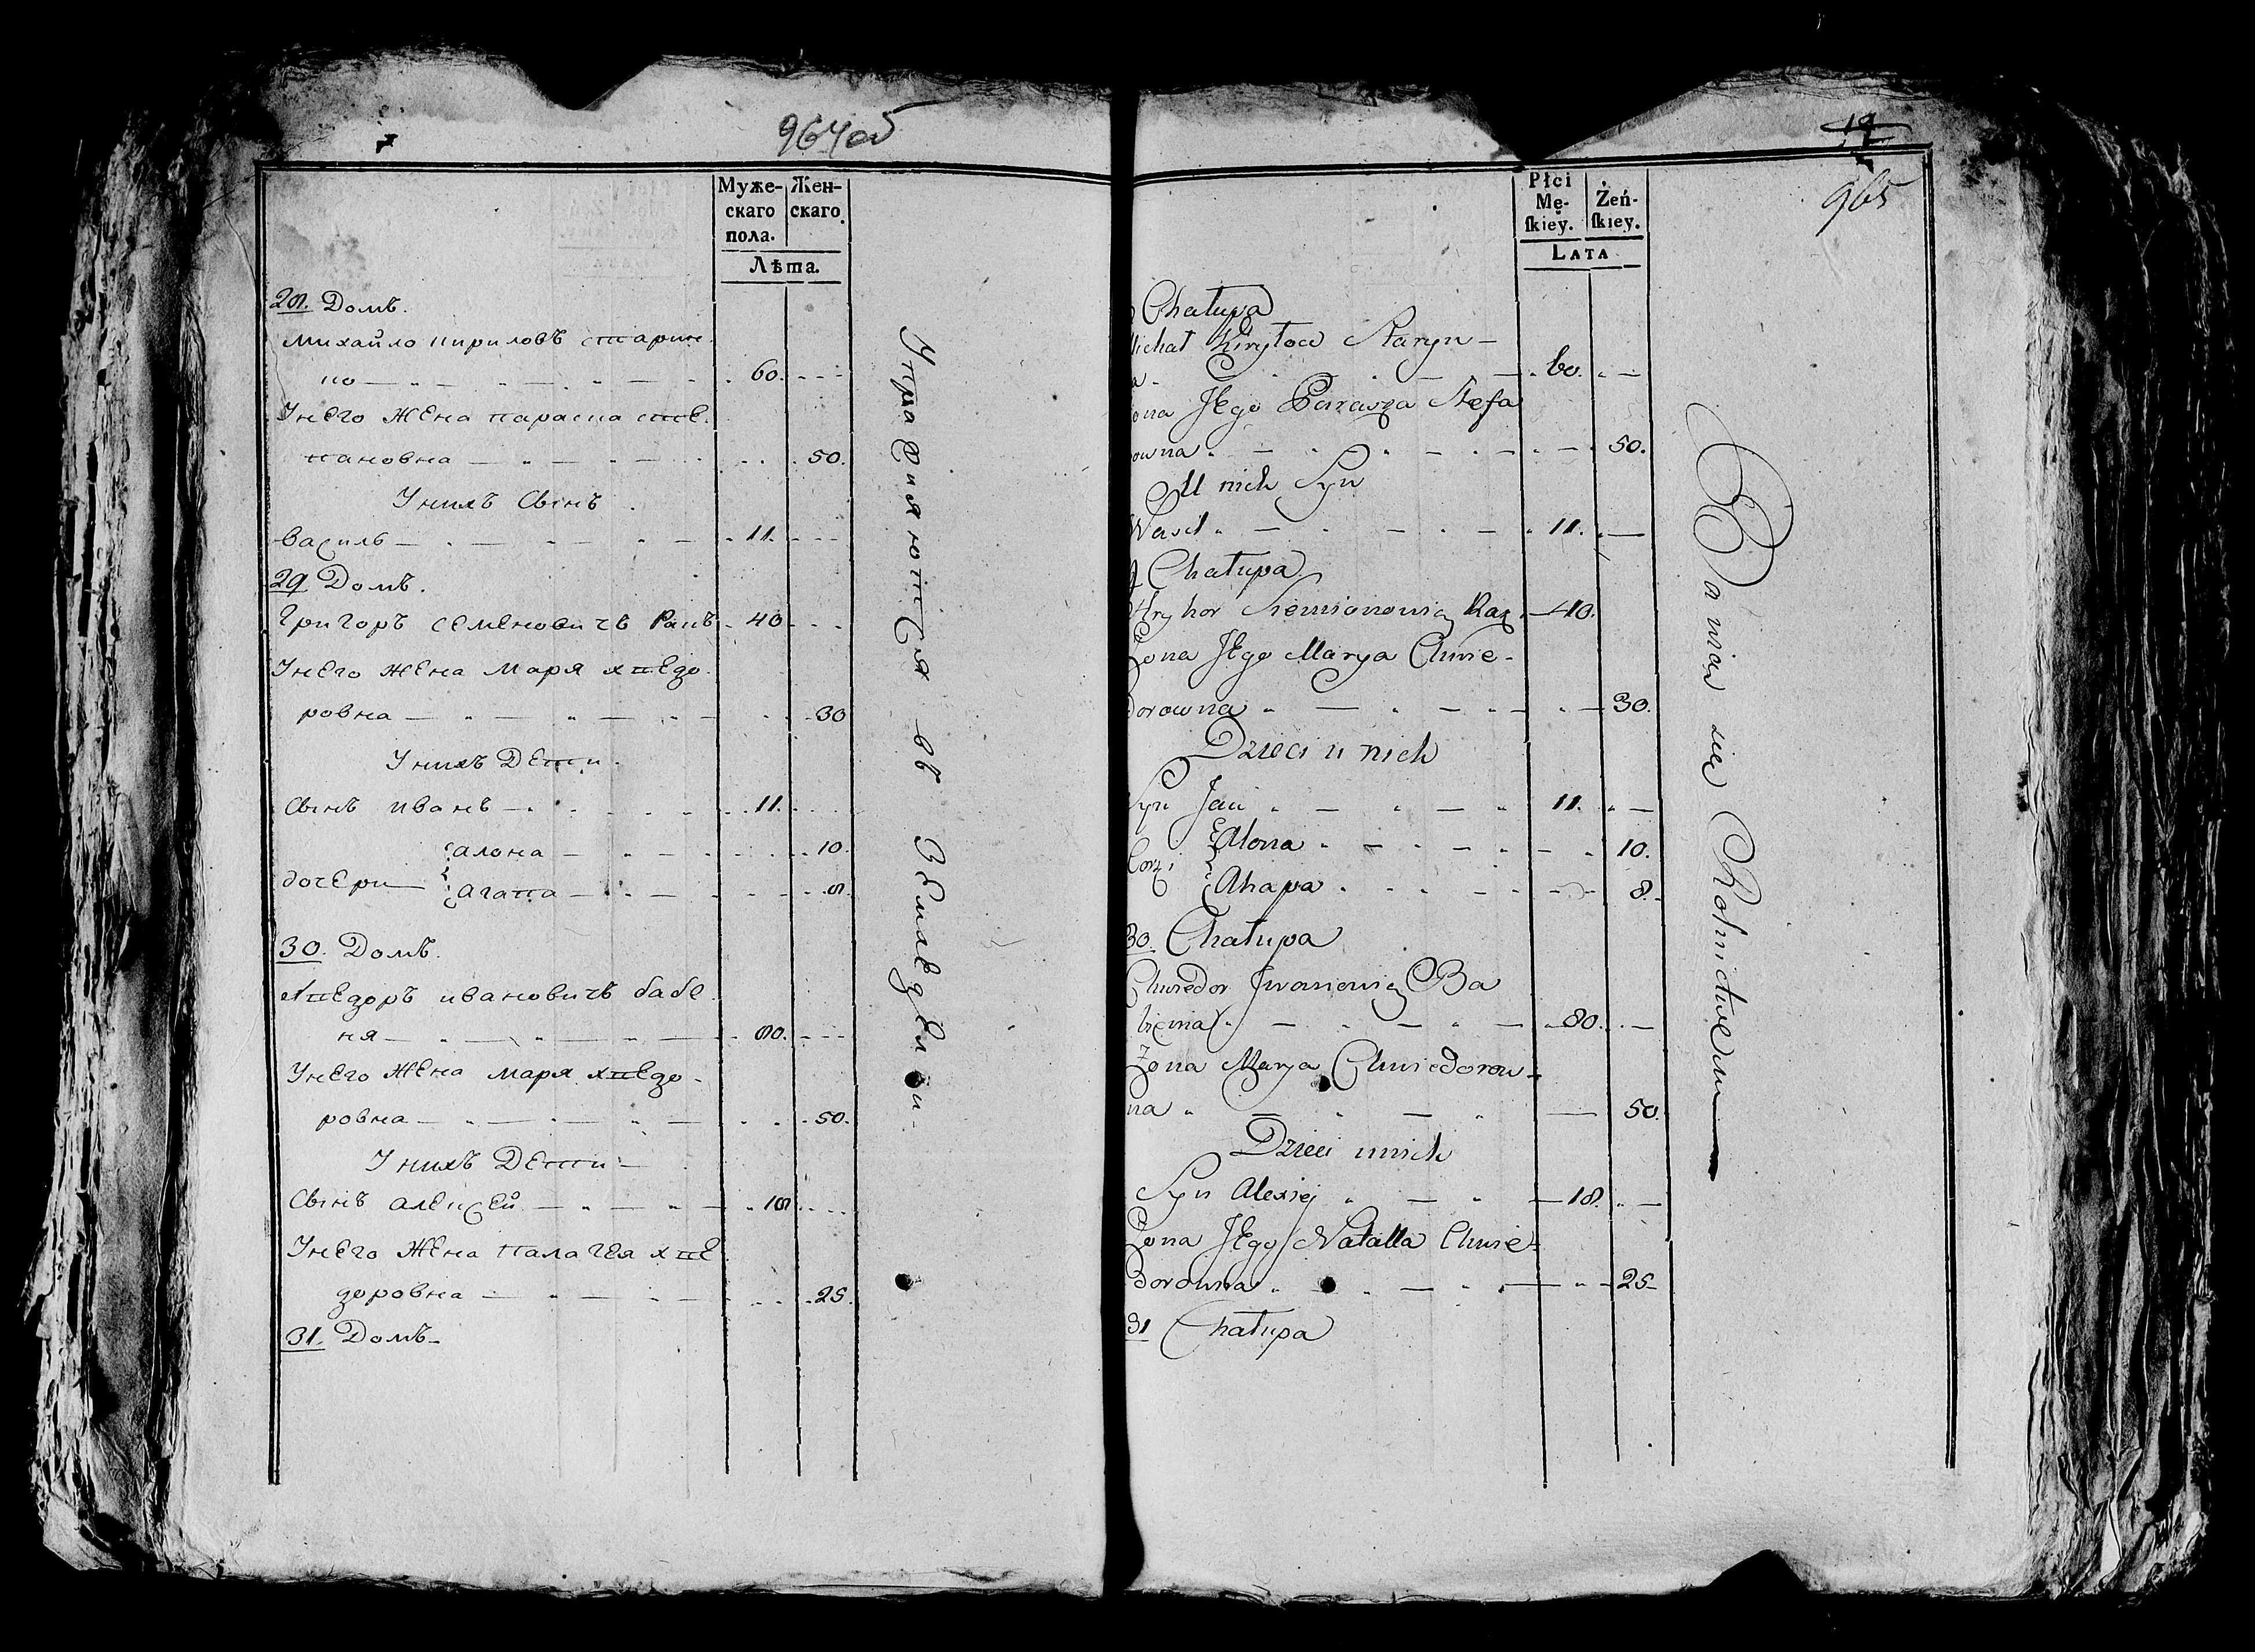 964об
Муже-
скаго
пола.
Жен-
скаго.
Лѣта.
28. Домъ.
Михайло кириловъ старин
ко — " — " — " — 60. - - -
Унего жена параска сте
пановна — " — " — 50.
Унихъ Сынъ
Василь — " — " — 11. - - -
29 Домъ.
Григоръ семеновичъ Ракъ - 40 - - -
Унего жена Маря хведо
ровна — " — " — 30
Унихъ Дети.
Сынъ иванъ — 11.
дочери
алона — " — 10.
агапа — " — 8.
30. Домъ.
хведоръ ивановичъ бабе
ня — " — " — 80. - - -
Унего жена маря хведо-
ровна — " — " — 50.
Унихъ Дети -
Сынъ алексей — " — " — 18
Унего жена палагея хве
доровна — " — " — 25.
31. Домъ -
Упражняются въ Земледелии.
19
965
Płci
Mę-
ſkiey.
Żeń-
ſkiey.
LATA
Chałupa
Michał Kiryłow Staryn -
a - 60. " —
ona Jego Paraszka Stefa
owna " — " — 50.
U nich Syn
Wasil " — " — 11. " —
9 Chałupa
Hryhor Siemionowicz Rak — 40.
Żona Jego Marya Chwie -
dorowna " — " — 30.
Dzieci u nich
Syn Jan " — " — 11. " —
Corki
Alona " — " — 10.
Ahapa " — " — 8. -
30. Chałupa
Chwiedor Jwanowicz Ba
bienia " — " — 80. —
Żona Marya Chwiedorow -
na " — " — 50.
Dzieci unich
Syn Alexiey " — " — 18. " —
Żona Jego Natalla Chwie -
dorowna " — " — 25 -
31 Chałupa
Bawią się Rolnictwem